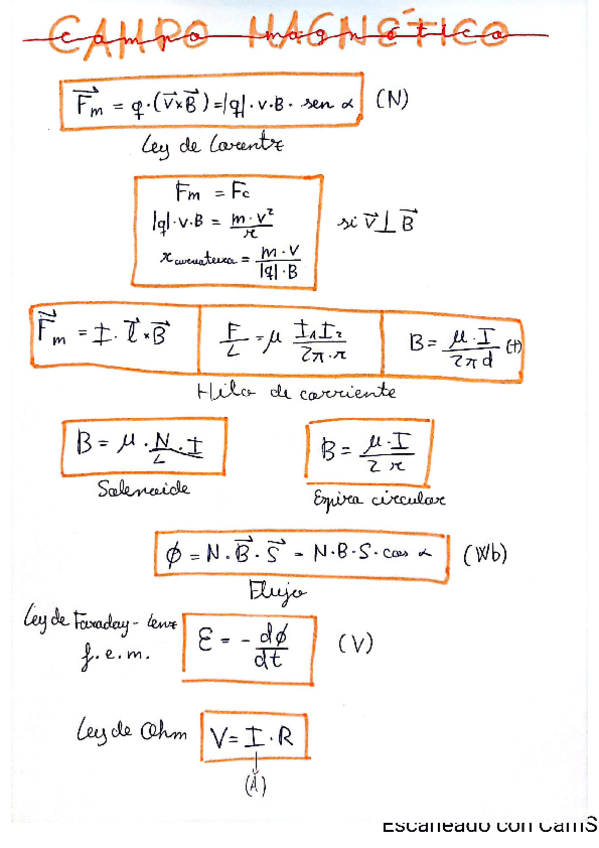 CAMPO MAGNÉTICO
campo magnético
F⃗m = q·(v⃗×B⃗)=|q|·v·B· sen α (N)
Ley de Lorentz
Fm = Fc
|q|·v·B = m·v²/r si v⃗⊥B⃗
r curvatura = m·v/|q|·B
F⃗m = I·l⃗×B⃗
F/L = μ I₁I₂/2π·r
B = μ·I/2πd (T)
Hilo de corriente
B = μ·N/L·I
Solenoide
B = μ·I/2r
Espira circular
ϕ = N·B⃗·S⃗ = N·B·S·cos α (Wb)
Flujo
Ley de Faraday-Lenz
f.e.m.
ε = - dϕ/dt (V)
Ley de Ohm V = I·R
(A)
Escaneado con CamS